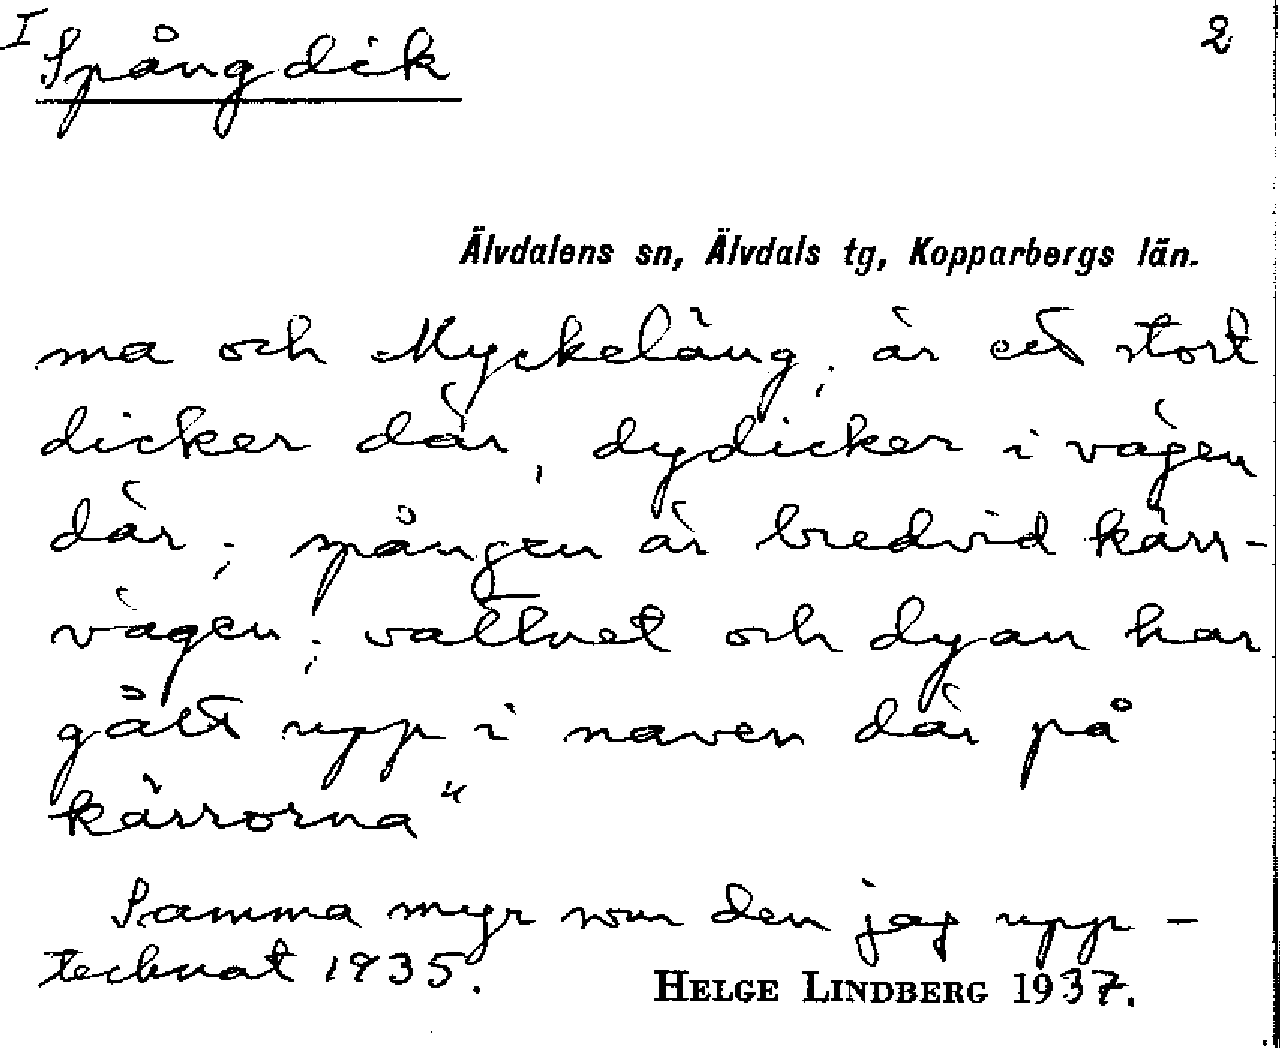 I
Spångdik 2
Älvdalens sn, Älvdals tg, Kopparbergs län.
ma och Myckeläng; är ett stort
dicker där, dydicker i vägen
där; spången är bredvid kärr-
vägen; vattnet och dyan har
gått upp i naven där på
kärrorna"
Samma myr som den jag upp-
tecknat 1935.
HELGE LINDBERG 1937.